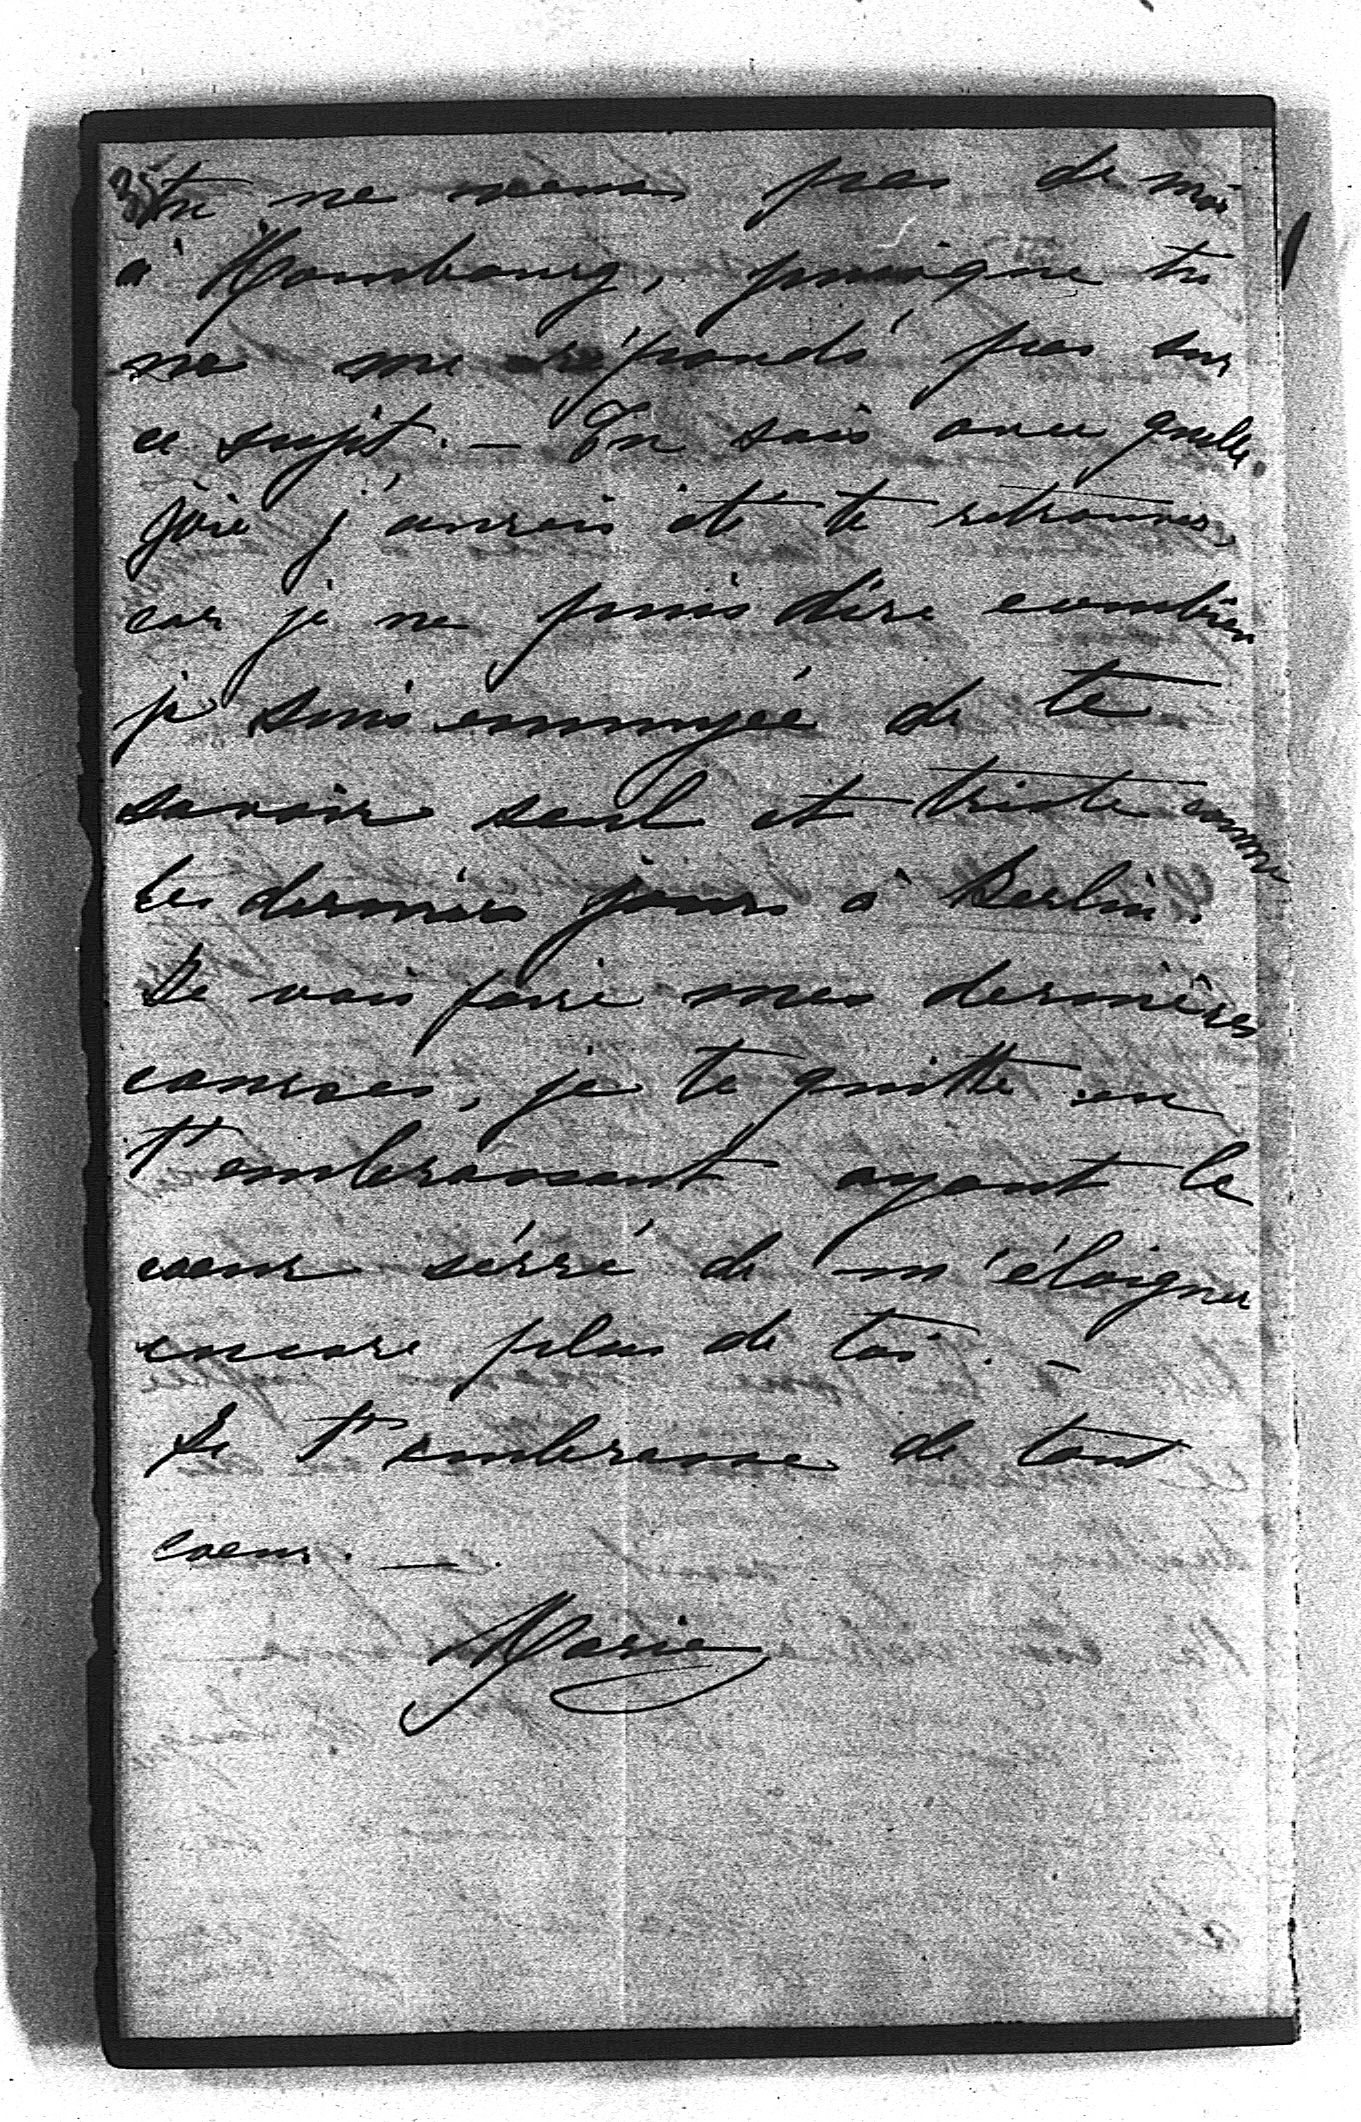 35
tu ne veux pas de moi
à Hombourg, puisque tu
ne me réponds pas sur
ce sujet. – Tu sais avec quelle
joie j'aurais été te retrouver,
car je ne puis dire combien
je suis ennuyée de te
savoir seul et triste comme
les derniers jours à Berlin.
Je vais faire mes dernières
courses, je te quitte en
t'embrassant ayant le
coeur sérré de m'éloigner
encore plus de toi. –
Je t'embrasse de tout
coeur. —
Marie